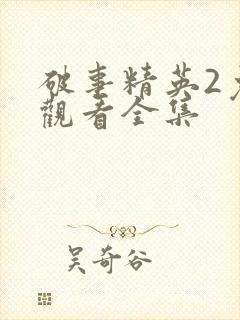 破事精英2免
觀看全集
吴奇谷